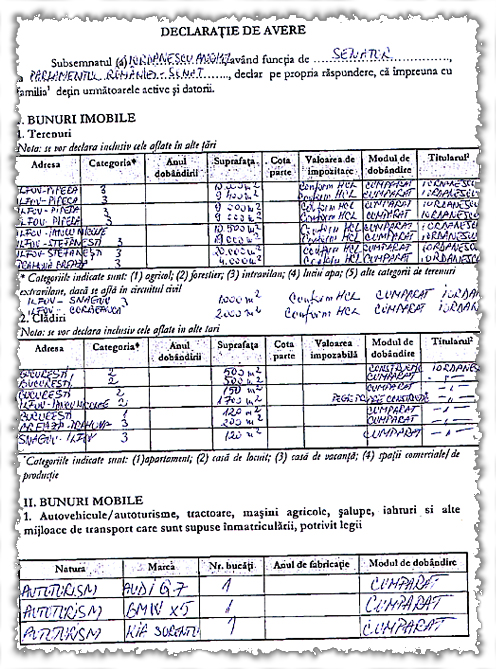 DECLARAŢIE DE AVERE
Subsemnatul (a) IORDANESCU ANGHEL având funcţia de SENATOR,
la PARLAMENTUL ROMÂNIEI - SENAT, declar pe propria răspundere, că împreuna cu
familia¹ deţin următoarele active şi datorii.
I. BUNURI IMOBILE
1. Terenuri
Nota: se vor declara inclusiv cele aflate in alte ţări
Adresa Categoria* Anul dobândirii Suprafaţa Cota parte Valoarea de impozitare Modul de dobândire Titularul²
ILFOV-PIPERA 3 Conform HCL CUMPARAT IORDANESCU
ILFOV-PIPERA 3 Conform HCL CUMPARAT IORDANESCU
ILFOV-PIPERA 3 Conform HCL CUMPARAT IORDANESCU
ILFOV-PIPERA 3 Conform HCL CUMPARAT IORDANESCU
ILFOV-IANCU NICOLAE Conform HCL CUMPARAT IORDANESCU
ILFOV-STEFANESTI 3 Conform HCL CUMPARAT IORDANESCU
ILFOV-STEFANESTI 3 Conform HCL CUMPARAT IORDANESCU
PRAHOVA BREAZA 3 Conform HCL CUMPARAT IORDANESCU
* Categoriile indicate sunt: (1) agricol; (2) forestier; (3) intravilan; (4) luciu apa; (5) alte categorii de terenuri
extravilane, dacă se află în circuitul civil
ILFOV - SNAGOV 3 1000 m² Conform HCL CUMPARAT IORDAN
ILFOV - CORBEANCA 2000 m² Conform HCL CUMPARAT IORDAN
2. Clădiri
Nota: se vor declara inclusiv cele aflate in alte tari
Adresa Categoria* Anul dobândirii Suprafaţa Cota parte Valoarea impozabilă Modul de dobândire Titularul²
BUCURESTI 2 500 m² CONSTRUCTIE IORDANES
BUCURESTI 2 500 m² CUMPARAT - " -
BUCURESTI 2 150 m² CUMPARAT - " -
ILFOV-IANCU NICOLAE 2 1700 m² - " -
BUCURESTI 1 120 m² CUMPARAT - " -
BREAZA-PRAHOVA 3 203 m² CUMPARAT - " -
SNAGOV-ILFOV 3 120 m² CUMPARAT - " -
*Categoriile indicate sunt: (1)apartament; (2) casă de locuit; (3) casă de vacanţă; (4) spaţii comerciale/ de
producţie
II. BUNURI MOBILE
1. Autovehicule/autoturisme, tractoare, maşini agricole, şalupe, iahturi si alte
mijloace de transport care sunt supuse înmatriculării, potrivit legii
Natura Marca Nr. bucăţi Anul de fabricaţie Modul de dobândire
AUTOTURISM AUDI Q7 1 CUMPARAT
AUTOTURISM BMW X5 1 CUMPARAT
AUTOTURISM KIA SORENTO 1 CUMPARAT